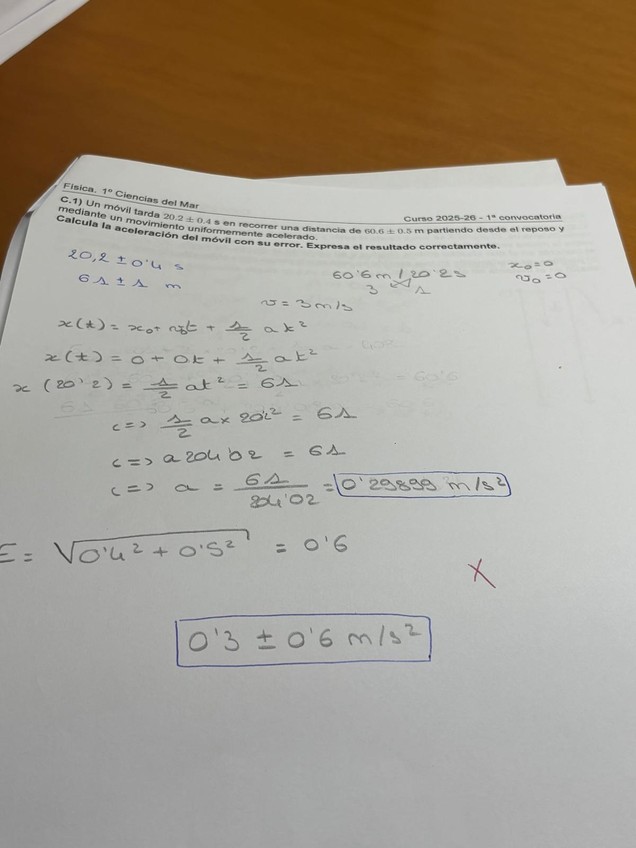 Física. 1º Ciencias del Mar
Curso 2025-26 - 1ª convocatoria
C.1) Un móvil tarda 20.2 ± 0.4 s en recorrer una distancia de 60.6 ± 0.5 m partiendo desde el reposo y
mediante un movimiento uniformemente acelerado.
Calcula la aceleración del móvil con su error. Expresa el resultado correctamente.
20,2 ± 0'4 s
61 ± 1 m
60'6 m / 20'2 s
3 1
x₀=0
v₀=0
v = 3 m/s
x(t) = x₀ + v₀t + 1/2 a t²
x(t) = 0 + 0t + 1/2 a t²
x (20'2) = 1/2 at² = 61
<=> 1/2 a x 20'2² = 61
= 61
<=> a = 61 / 204'02 = 0'29899 m/s²
E = √0'4² + 0'5² = 0'6
X
0'3 ± 0'6 m/s²